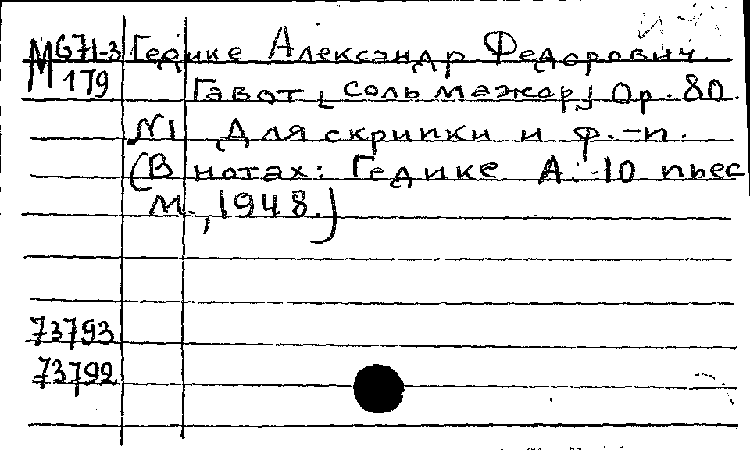 М G71-3 Гедике Александр Федорович.
179 Гавот [соль мажор] Op. 80
N1 Для скрипки и ф.-п.
(В нотах: Гедике А. 10 пьес
М., 1948.)
73793
73792